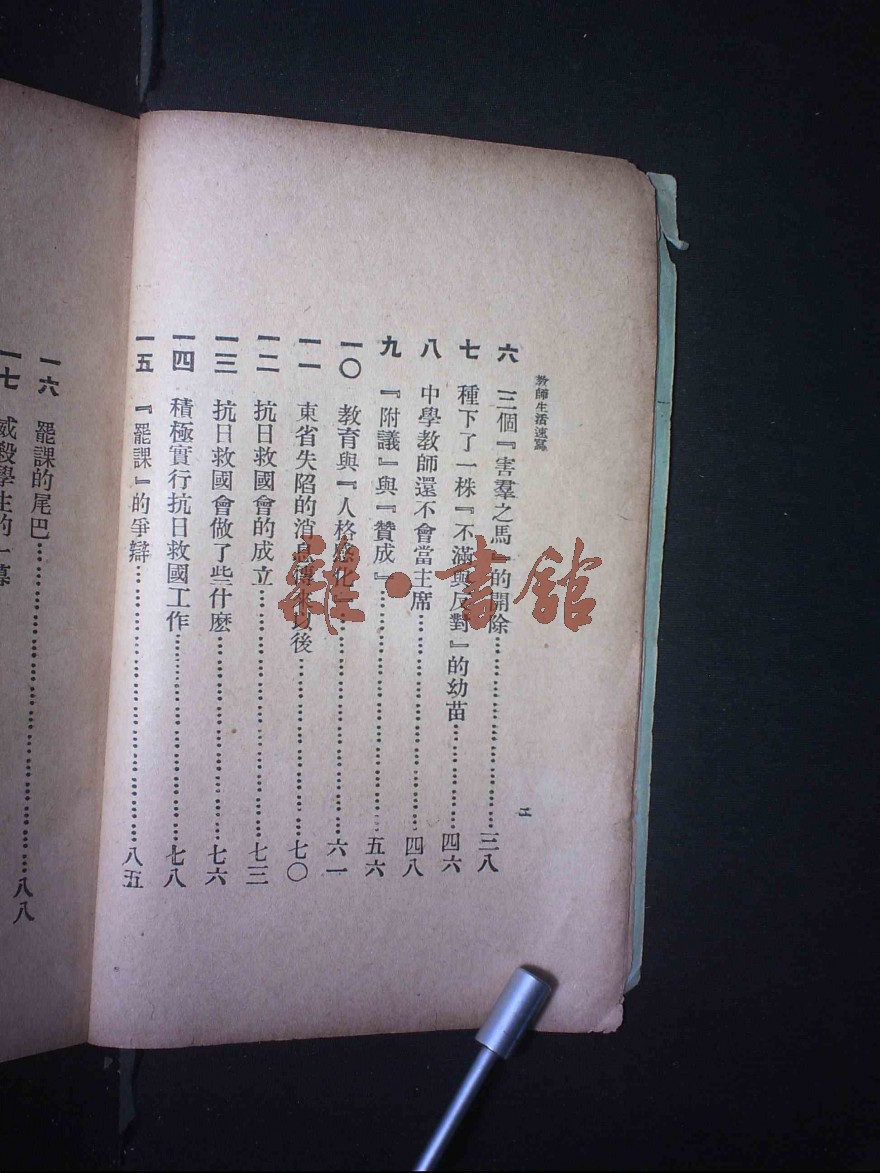 教師生活速寫
二
六 三個『害羣之馬』的開除……三八
七 種下了一株『不滿與反對』的幼苗……四六
八 中學教師還不會當主席……四八
九 『附議』與『贊成』……五六
一〇 教育與『人格感化』……六一
一一 東省失陷的消息傳來以後……七〇
一二 抗日救國會的成立……七三
一三 抗日救國會做了些什麽……七六
一四 積極實行抗日救國工作……七八
一五 『罷課』的爭辯……八五
一六 罷課的尾巴……八八
一七 威殺學生的一幕
雜·書館